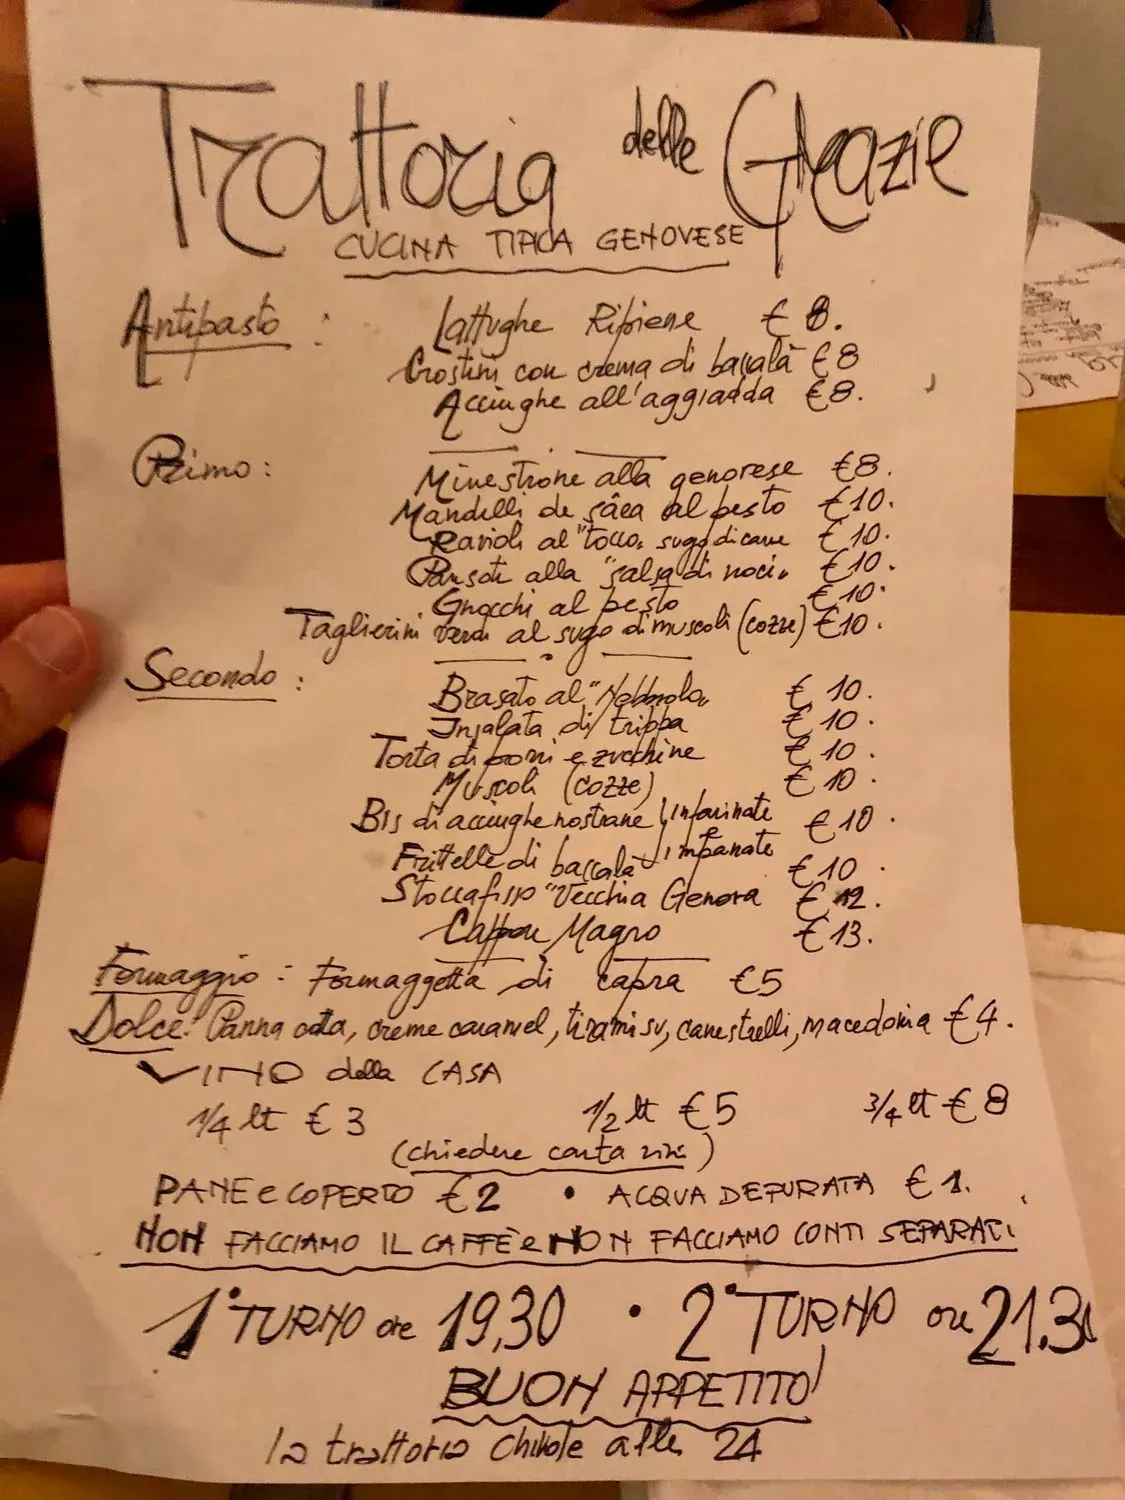 Trattoria delle Grazie
CUCINA TIPICA GENOVESE
Antipasto : Lattughe Ripiene € 8.
Crostini con crema di baccalà € 8
Acciughe all'aggiadda € 8.
Primo : Minestrone alla genovese € 8.
Mandilli de sâea al pesto € 10.
Ravioli al "tocco" sugo di carne € 10.
Pansoti alla "salsa di noci" € 10.
Gnocchi al pesto € 10.
Taglierini verdi al sugo di muscoli (cozze) € 10.
Secondo : Brasato al "Nebbiolo" € 10.
Insalata di trippa € 10.
Torta di porri e zucchine € 10.
Muscoli (cozze) € 10.
Bis di acciughe nostrane infarinate e impanate € 10.
Frittelle di baccalà € 10.
Stoccafisso "Vecchia Genova € 12.
Cappon Magro € 13.
Formaggio : Formaggetta di capra € 5
Dolce: Panna cotta, creme caramel, tiramisu, canestrelli, macedonia € 4.
VINO della CASA
1/4 lt € 3 1/2 lt € 5 3/4 lt € 8
(chiedere carta vini)
PANE e COPERTO € 2 • ACQUA DEPURATA € 1.
NON FACCIAMO IL CAFFÈ e NON FACCIAMO CONTI SEPARATI
1° TURNO ore 19,30 • 2° TURNO ore 21.30
BUON APPETITO!
la trattoria chiude alle 24